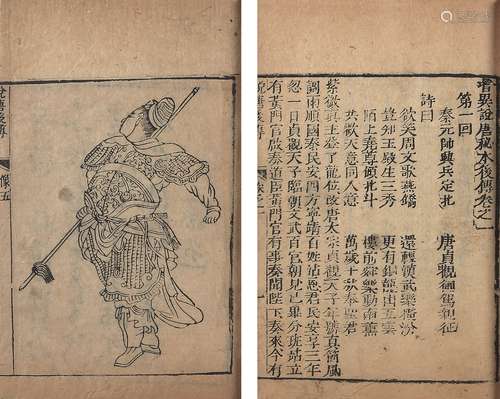 說唐後傳
像五
增異說唐秘本後傳卷之一
第一回
秦元帥興兵定北 唐貞觀御駕親征
詩曰
欲笑周文歌燕鎬 還輕漢武樂橫汾
豈知玉殿生三秀 更有銅出五雲
陌上堯尊傾北斗 樓前舜樂動南薰
共歡天意同人意 萬歲千秋奉聖君
紫微真主登了龍位改唐太宗貞觀天子年號真箇風
調雨順國泰民安四方寧靖百姓沾恩君民安享三年
忽一日貞觀天子臨朝文武百官朝見已畢分班站立
有黃門官啟奏道臣黃門官有事奏聞陛下奏來今有
說唐後傳